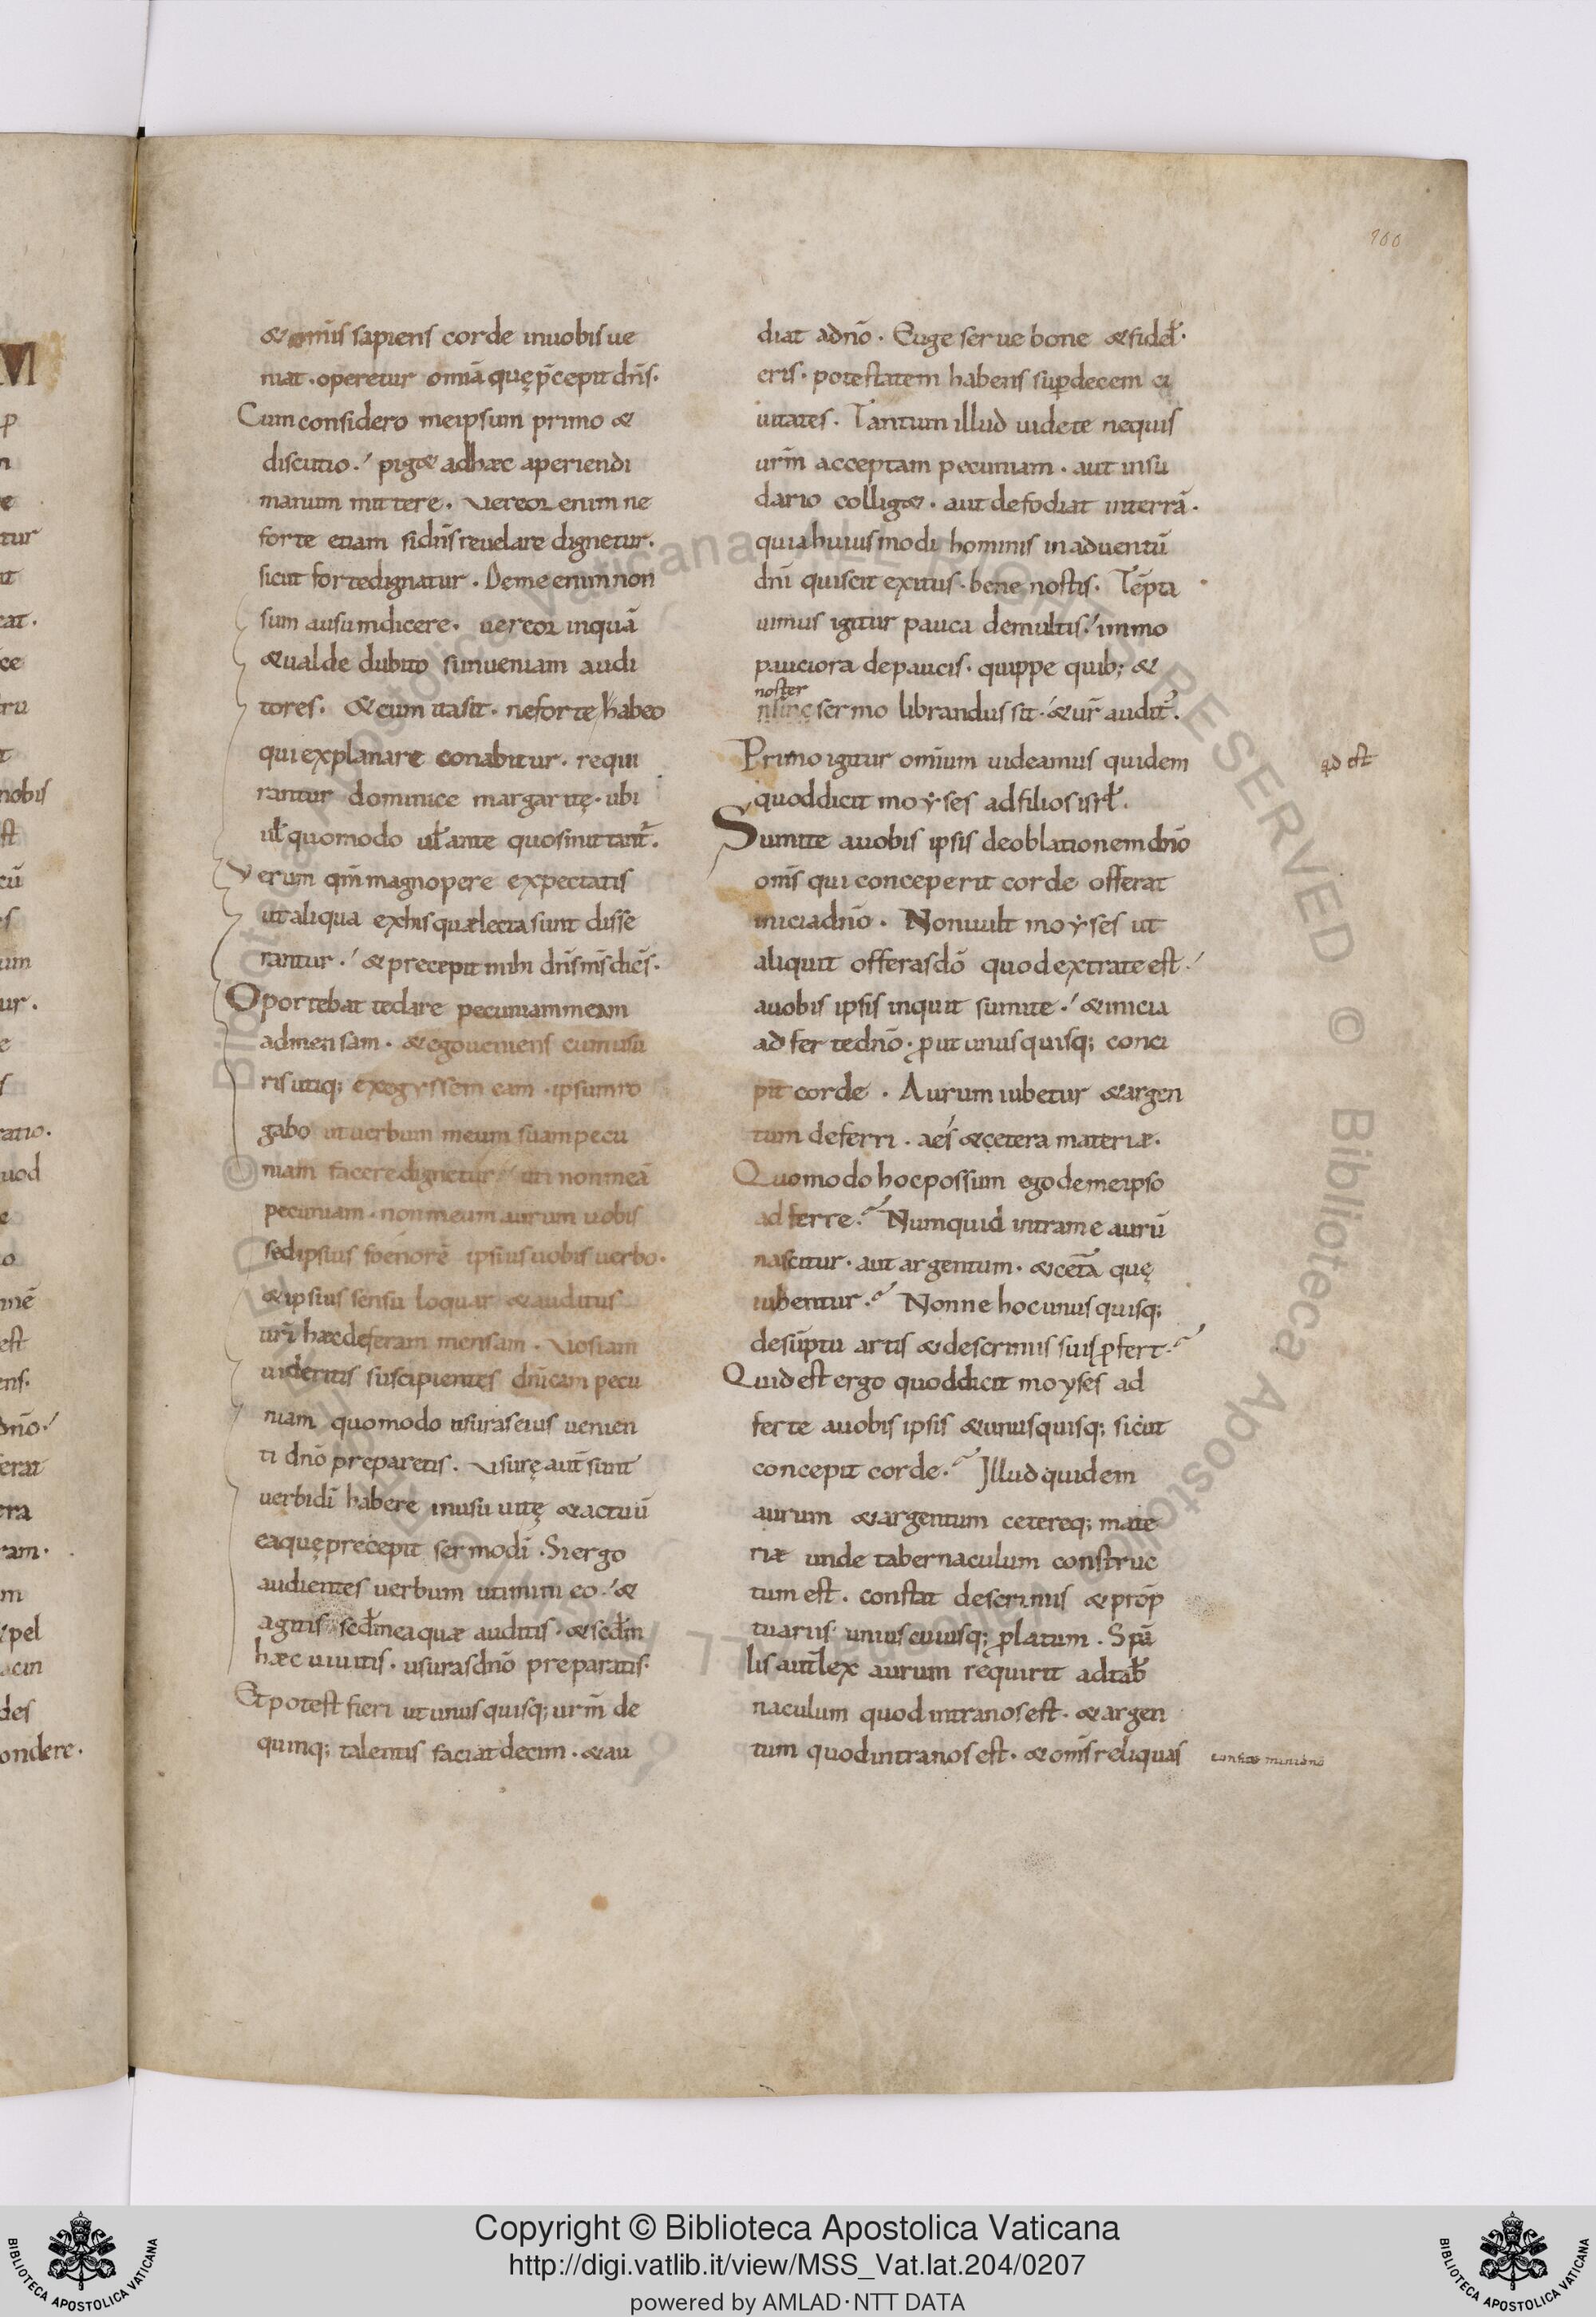 100
& omīs sapiens corde inuobis ue
niat · operetur omīa quę p̄cepit dn̄s·
Cum considero meipsum primo &
discutio · pig& adhæc aperiendi
manum mittere · Vereor enim ne
forte etiam sidn̄s reuelare dignetur·
sicut forte dignatur · Deme enim non
sum ausum dicere · uereor inquā
& ualde dubito si inueniam audi
tores · & cum ita sit · ne forte habeo
qui explanare conabitur · requi
rantur dominice margaritę · ubi
ul̄ quomodo ul̄ ante quos mittant᷑.
Verum qm̄ magnopere expectatis
ut aliqua exhis quæ lecta sunt disse
rantur · & precepit mihi dn̄s ms̄ dicēs·
Oportebat te dare pecuniam meam
ad mensam · & ego ueniens cum usu
ris utiq; exegyssem eam · ipsum ro
gabo ut uerbum meum suam pecu
niam facere dignetur · ut non meā
pecuniam · non meum aurum uobis
sed ipsius foenore ipsius uobis uerbo·
& ipsius sensu loquar & auditus
ur̄i hæc deferam mensam · Vos iam
uideritis suscipientes dn̄icam pecu
niam quomodo usuras eius uenien
ti dn̄o preparetis · Vsurę aut̄ sunt
uerbi dī habere in usu uitę & actuū
ea quę precepit sermo dī · Si ergo
audientes uerbum utimini eo · &
agitis sed̄m ea quæ auditis · & sed̄m
hæc uiuitis · usuras dn̄o preparatis·
Et potest fieri ut unusquisq; urm̄ de
quinq; talentis faciat decim · & au
diat adn̄o · Euge serue bone & fidel̄·
eris · potestatem habens sup decem ci
uitates · Tantum illud uidete nequis
urm̄ acceptam pecuniam · aut insu
dario collig& · aut defodiat interrā·
quia huiusmodi hominis in aduentū
dn̄i qui scit exitus · bene nostis · Tēpta
uimus igitur pauca demultis · immo
pauciora depaucis · quippe quib; &
noster
sermo librandus sit · & ur̄ audit᷑.
Primo igitur omīum uideamus quidem
qd est
quod dicit moyses ad filios isrl̄.
Sumite auobis ipsis deoblationem dn̄o
omīs qui conceperit corde offerat
inicia dn̄o · Non uult moyses ut
aliquit offeras dō quod extra te est·
auobis ipsis inquit sumite · & inicia
adferte dn̄o · p ut unusquisq; conci
pit corde · Aurum iubetur & argen
tum deferri · aes & cetera materiæ·
Quomodo hoc possum ego de meipso
adferre · Numquid intra me aurū
nascitur · aut argentum · & ceta᷑ quę
iubentur · Nonne hoc unusquisq;
desūptu artis & descriniis suis pfert·
Quid est ergo quod dicit moyses ad
ferte auobis ipsis & unusquisq; sicut
concepit corde · Illud quidem
aurum & argentum cetereq; mate
riæ unde tabernaculum construc
tum est · constat descriniis & prōp
tuariis unius cuiusq; platum · Spā
lis aut̄ lex aurum requirit ad tab̄
naculum quod intra nos est · & argen
tum quod intra nos est · & omīs reliquas
Copyright © Biblioteca Apostolica Vaticana
http://digi.vatlib.it/view/MSS_Vat.lat.204/0207
powered by AMLAD·NTT DATA
BIBLIOTECA APOSTOLICA VATICANA
BIBLIOTECA APOSTOLICA VATICANA